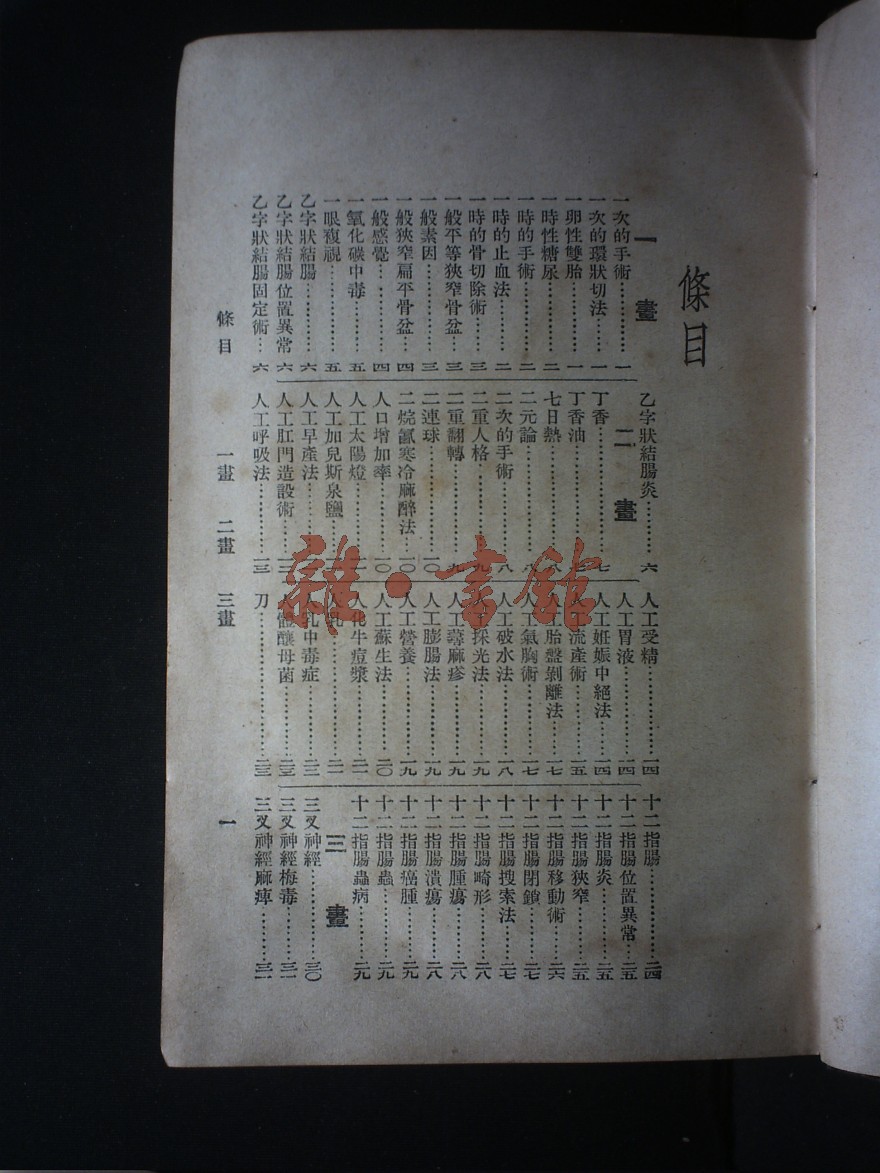 條目
一畫
一次的手術…………一
一次的環狀切法………一
一卵性雙胎…………一
一時性糖尿…………二
一時的手術…………二
一時的止血法…………二
一時的骨切除術………三
一般平等狹窄骨盆……三
一般素因…………三
一般狹窄扁平骨盆……四
一般感覺…………四
一氧化碳中毒…………五
一眼複視…………五
乙字狀結腸…………六
乙字狀結腸位置異常 六
乙字狀結腸固定術…六
乙字狀結腸炎…………六
二畫
丁香…………七
丁香油…………七
七日熱…………八
二元論…………八
二次的手術…………八
二重人格…………九
二重翻轉…………九
二連球…………一〇
二烷氯寒冷麻醉法…一〇
人口增加率…………一〇
人工太陽燈…………一一
人工加兒斯泉鹽………一一
人工早產法…………
人工肛門造設術………一二
人工呼吸法…………一三
人工受精…………一四
人工胃液…………一四
人工姙娠中絕法………一四
人工流產術…………一五
人工胎盤剝離法………一七
人工氣胸術…………一七
人工破水法…………一八
人工採光法…………一九
人工蕁麻疹…………一九
人工膨腸法…………一九
人工營養…………一九
人工蘇生法…………二〇
人化牛痘漿…………二一
人乳…………二一
人乳中毒症…………二三
人體釀母菌…………二三
刀…………二三
十二指腸…………二四
十二指腸位置異常…二五
十二指腸炎…………二五
十二指腸狹窄…………二五
十二指腸移動術………二六
十二指腸閉鎖…………二七
十二指腸搜索法………二七
十二指腸畸形…………二八
十二指腸腫瘍…………二八
十二指腸潰瘍…………二八
十二指腸癌腫…………二九
十二指腸蟲…………二九
十二指腸蟲病…………二九
三畫
三叉神經…………三〇
三叉神經梅毒…………三一
三叉神經麻痺…………三一
條目 一畫 二畫 三畫 一
雜·書館